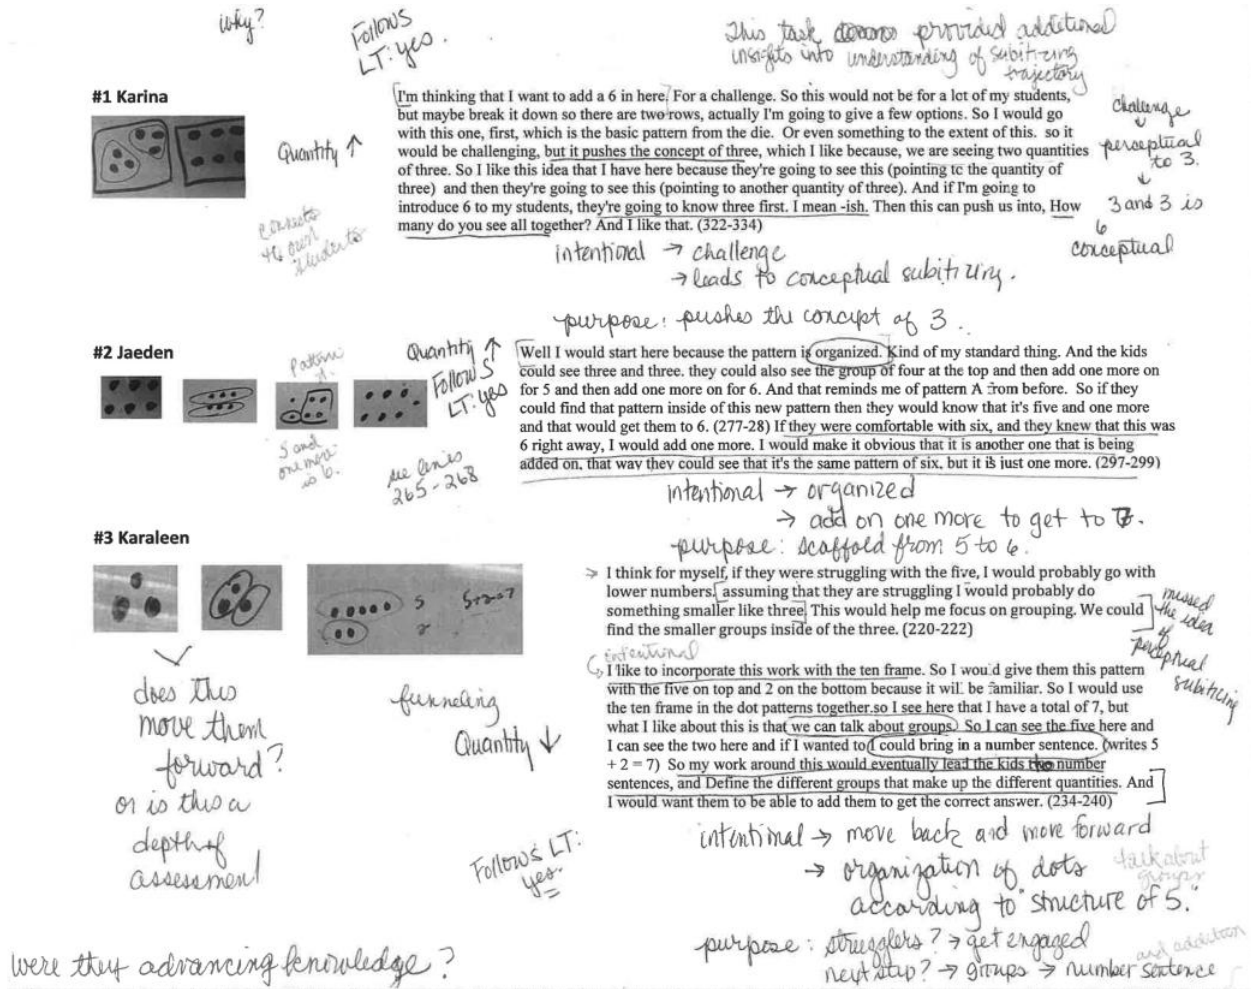 why?
Follows
LT: yes.
This task provided additional
insights into understanding of subitizing
trajectory
#1 Karina
I'm thinking that I want to add a 6 in here. For a challenge. So this would not be for a lot of my students,
but maybe break it down so there are two rows, actually I'm going to give a few options. So I would go
with this one, first, which is the basic pattern from the die. Or even something to the extent of this. so it
would be challenging, but it pushes the concept of three, which I like because, we are seeing two quantities
of three. So I like this idea that I have here because they're going to see this (pointing to the quantity of
three) and then they're going to see this (pointing to another quantity of three). And if I'm going to
introduce 6 to my students, they're going to know three first. I mean -ish. Then this can push us into, How
many do you see all together? And I like that. (322-334)
Quantity ↑
connects
to own
students
challenge
↓
perceptual
to 3.
↓
3 and 3 is
6
conceptual
intentional → challenge
→ leads to conceptual subitizing.
purpose: pushes the concept of 3.
#2 Jaeden
Pattern
A.
5 and
one more
is 6.
Quantity ↑
Follows
LT: yes
see lines
265-268
Well I would start here because the pattern is organized. Kind of my standard thing. And the kids
could see three and three. they could also see the group of four at the top and then add one more on
for 5 and then add one more on for 6. And that reminds me of pattern A from before. So if they
could find that pattern inside of this new pattern then they would know that it's five and one more
and that would get them to 6. (277-28) If they were comfortable with six, and they knew that this was
6 right away, I would add one more. I would make it obvious that it is another one that is being
added on, that way they could see that it's the same pattern of six, but it is just one more. (297-299)
intentional → organized
→ add on one more to get to 7.
purpose: scaffold from 5 to 6.
#3 Karaleen
5
2
5+2=7
I think for myself, if they were struggling with the five, I would probably go with
lower numbers. assuming that they are struggling I would probably do
something smaller like three. This would help me focus on grouping. We could
find the smaller groups inside of the three. (220-222)
missed
the idea
of
perceptual
subitizing
intentional
I like to incorporate this work with the ten frame. So I would give them this pattern
with the five on top and 2 on the bottom because it will be familiar. So I would use
the ten frame in the dot patterns together.so I see here that I have a total of 7, but
what I like about this is that we can talk about groups. So I can see the five here and
I can see the two here and if I wanted to I could bring in a number sentence. (writes 5
+ 2 = 7) So my work around this would eventually lead the kids two number
sentences, and Define the different groups that make up the different quantities. And
I would want them to be able to add them to get the correct answer. (234-240)
does this
move them
forward?
or is this a
depth of
assessment
funneling
Quantity ↓
Follows LT:
yes.
intentional → move back and move forward
→ organization of dots
according to "structure of 5."
talk about
groups
purpose: strugglers? → get engaged
next step? → groups → number sentence
and addition
were they advancing knowledge?